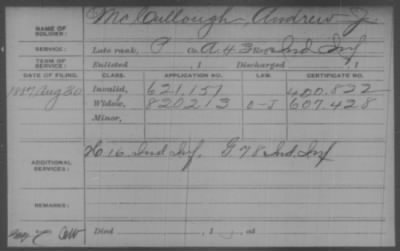 NAME OF SOLDIER: McCullough, Andrew J.
SERVICE: Late rank, P Co. A. 43 Reg't Ind Inf
TERM OF SERVICE: Enlisted , 1 Discharged , 1
DATE OF FILING. CLASS. APPLICATION NO. LAW. CERTIFICATE NO.
1887 Aug 30 Invalid, 621,151 400.822
Widow, 820213 607.428
Minor,
ADDITIONAL SERVICES: H 16 Ind Inf, G 78 Ind. Inf
REMARKS:
Died , 1 , at